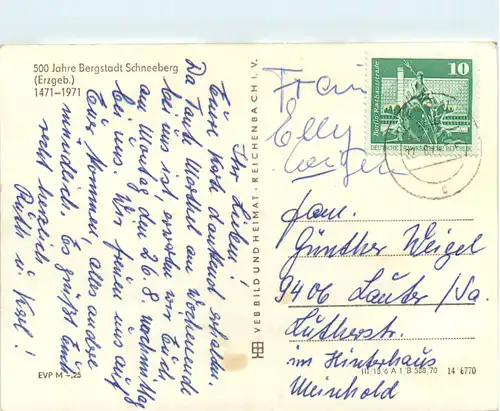 500 Jahre Bergstadt Schneeberg
(Erzgeb.)
1471–1971
Ihr Lieben!
Eure Karte dankend erhalten.
Da Tante Marthel am Wochenende
bei uns ist, erwarten wir Euch
am Montag, den 26.8. nachmittag
bei uns. Wir freuen uns auf
Euer Kommen, alles andere
mündlich. Es grüßt Euch
recht herzlich
Ruth u. Karl!
EVP M –,25
VEB BILD UND HEIMAT · REICHENBACH I. V.
Frau
Elly
10
Berlin Rathausstraße
DEUTSCHE DEMOKRATISCHE REPUBLIK
Fam.
Günther Weigel
9406 Lauter/Sa.
Lutherstr.
im Hinterhaus
Meinhold
III/18/6 A 1 B 558/70 14 6770